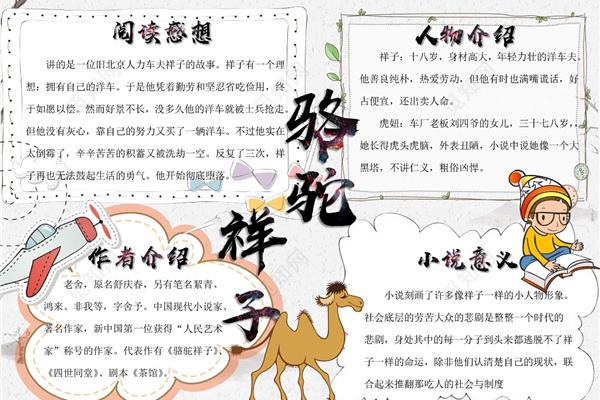 阅读感想
讲的是一位旧北京人力车夫祥子的故事。祥子有一个理
想：拥有自己的洋车。于是他凭着勤劳和坚忍省吃俭用，终
于如愿以偿。然而好景不长，没多久他的洋车就被士兵抢走。
但他没有灰心，靠自己的努力又买了一辆洋车。不过他实在
太倒霉了，辛辛苦苦的积蓄又被洗劫一空。反复了三次，祥
子再也无法鼓起生活的勇气。他开始彻底堕落。
人物介绍
祥子：十八岁，身材高大，年轻力壮的洋车夫。
他善良纯朴，热爱劳动，但他有时也满嘴谎话，好
占便宜，还出卖人命。
虎妞：车厂老板刘四爷的女儿，三十七八岁，
她长得虎头虎脑，外表丑陋，小说中说她像一个大
黑塔，不讲仁义，粗俗凶悍。
骆驼
祥子
作者介绍
老舍，原名舒庆春，另有笔名絜青、
鸿来、非我等，字舍予。中国现代小说家、
著名作家，新中国第一位获得“人民艺术
家”称号的作家。代表作有《骆驼祥子》、
《四世同堂》、剧本《茶馆》。
小说意义
小说刻画了许多像祥子一样的小人物形象。
社会底层的劳苦大众的悲剧是整整一个时代的
悲剧，身处其中的每一分子到头来都逃脱不了祥
子一样的命运，除非他们认清是自己的现状，联
合起来推翻那吃人的社会与制度